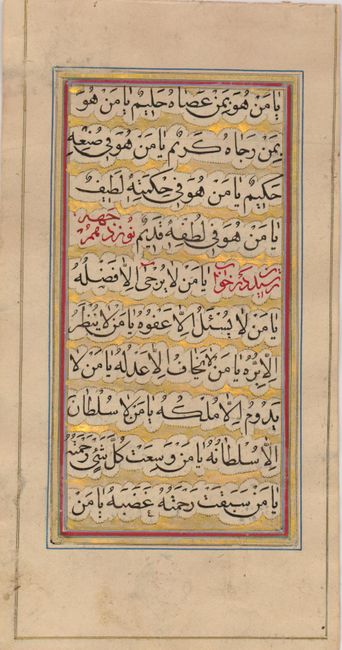 يَا مَنْ هُوَ بِمَنْ عَصَاهُ حَلِيمٌ يَا مَنْ هُوَ
بِمَنْ رَجَاهُ كَرِيمٌ يَا مَنْ هُوَ فِي صُنْعِهِ
حَكِيمٌ يَا مَنْ هُوَ فِي حِكْمَتِهِ لَطِيفٌ
يَا مَنْ هُوَ فِي لُطْفِهِ قَدِيمٌ نوزدهم جهة
يَا مَنْ لَا يُرْجَى إِلَّا فَضْلُهُ
يَا مَنْ لَا يُسْئَلُ إِلَّا عَفْوُهُ يَا مَنْ لَا يُنْظَرُ
إِلَّا بِرُّهُ يَا مَنْ لَا يُخَافُ إِلَّا عَدْلُهُ يَا مَنْ لَا
يَدُومُ إِلَّا مُلْكُهُ يَا مَنْ لَا سُلْطَانَ
إِلَّا سُلْطَانُهُ يَا مَنْ وَسِعَتْ كُلَّ شَيْءٍ رَحْمَتُهُ
يَا مَنْ سَبَقَتْ رَحْمَتُهُ غَضَبَهُ يَا مَنْ